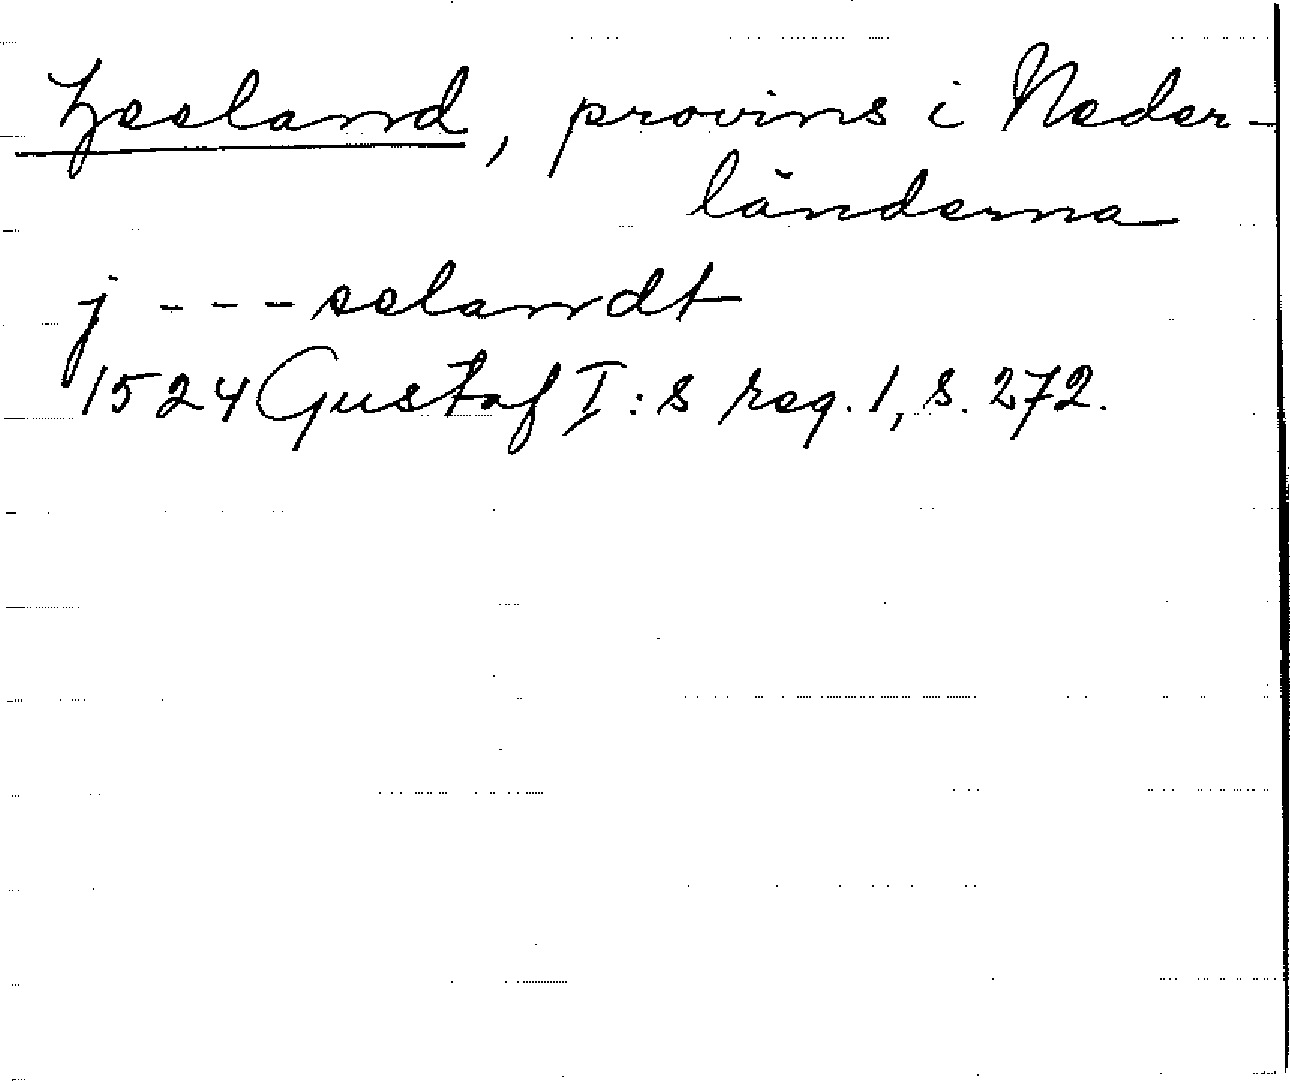 Zeeland, provins i Neder-
länderna
j - - - selandt
1524 Gustaf I:s reg. 1, s. 272.